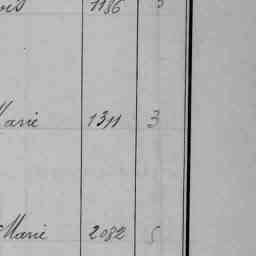 1186
Marie 1311 3
Marie 2082 5